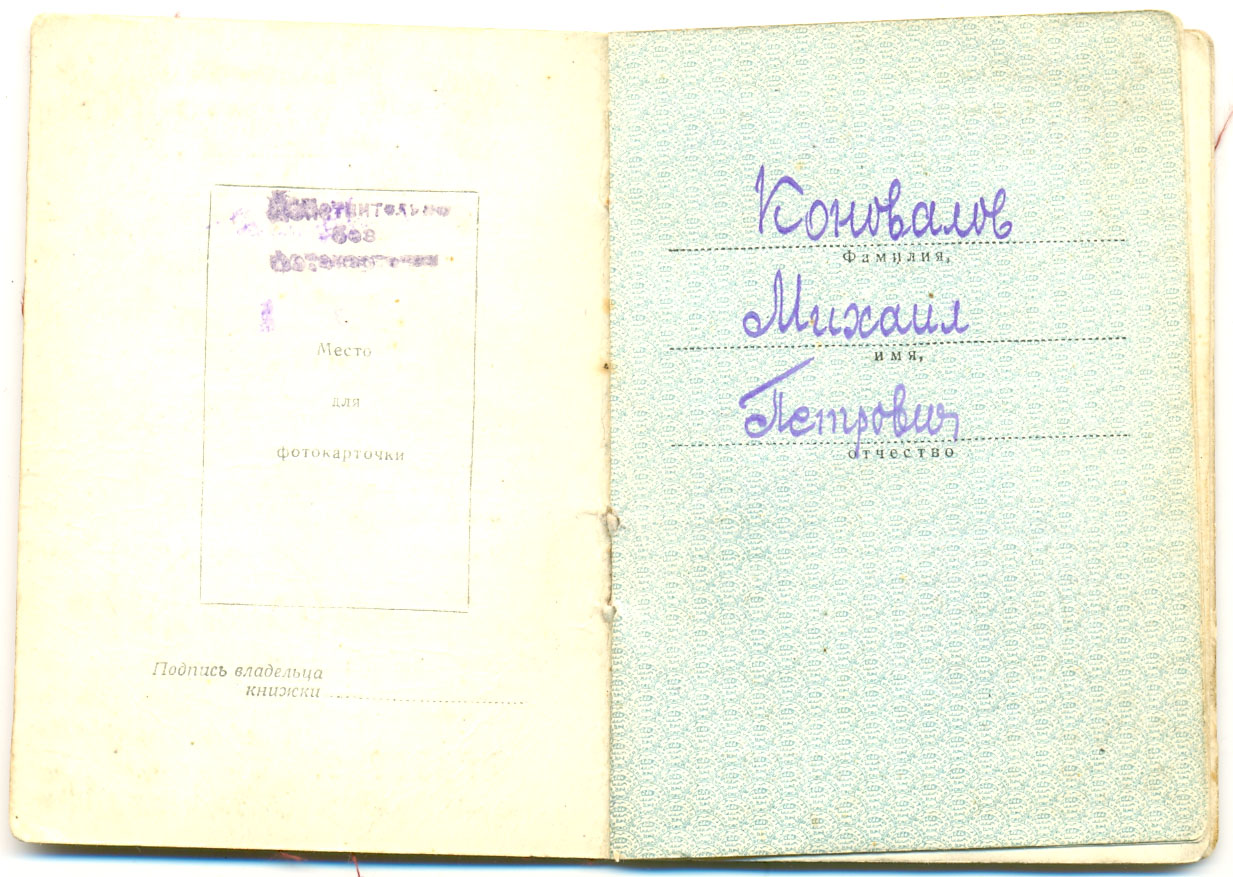 Действительно
без
фотокарточки
Место
для
фотокарточки
Подпись владельца
книжки
Коновалов
Фамилия,
Михаил
имя,
Петрович
отчество